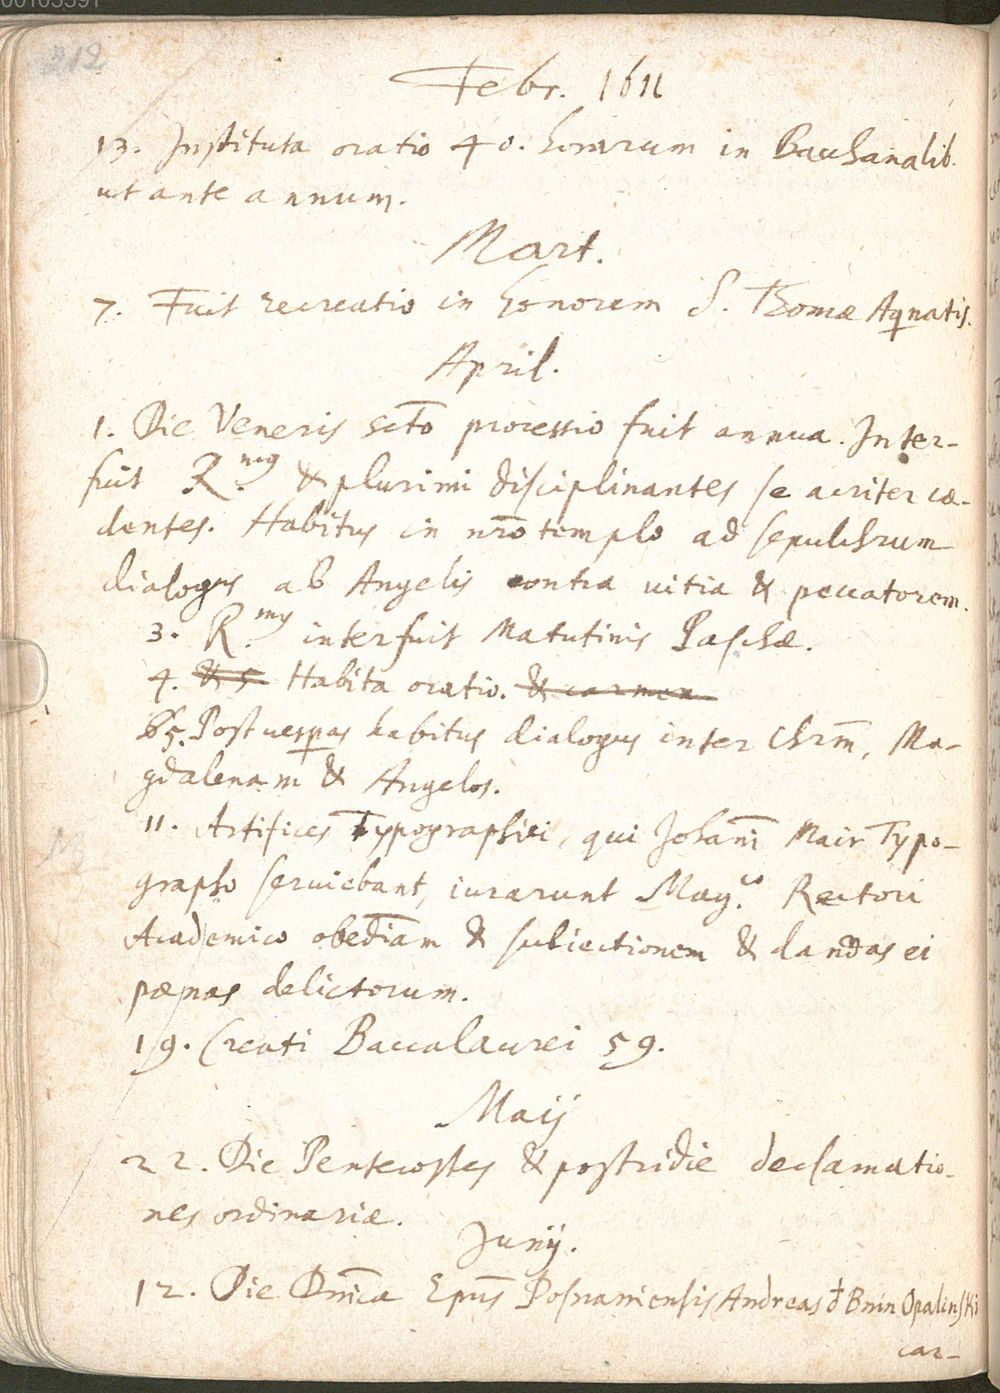 00105391
212
Febr. 1611
13. Instituta oratio 40. horarum in Bacchanalib.
ut ante annum.
Mart.
7. Fuit recreatio in honorem S. Thomæ Aqnatis.
April.
1. Die Veneris scto processio fuit annua. Inter-
fuit R.mus & plurimi disciplinantes se acriter cæ-
dentes. Habitus in nro templo ad sepulchrum
dialogus ab Angelis contra vitia & peccatorem.
3. R.mus interfuit Matutinis Paschæ.
4. & 5 Habita oratio. & carmen
5. Post vesperas habitus dialogus inter Chrm, Ma-
gdalenam & Angelos.
11. Artifices Typographici, qui Johani Mair Typo-
grapho serviebant, iurarunt Mag.co Rectori
Academico obediam & subiectionem & dandas ei
pœnas delictorum.
19. Creati Baccalaurei 59.
Maij
22. Die Pentecostes & postridie declamatio-
nes ordinariæ.
Junij.
12. Die Dnica Epus Posnaniensis Andreas d Bnin Opalinski
car-